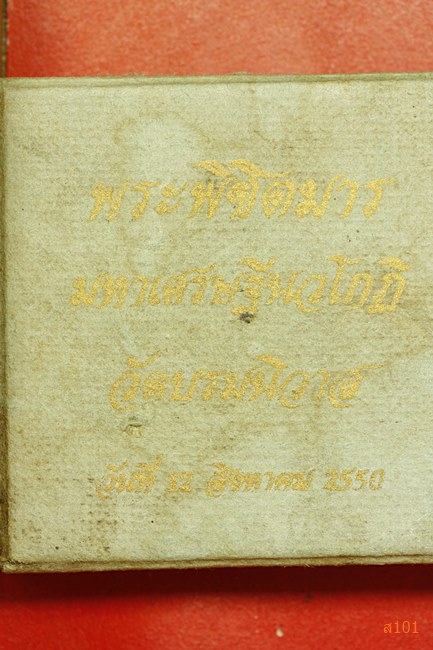 พระพิชิตมาร
มหาเศรษฐีนวโกฏิ
วัดบรมนิวาส
วันที่ 12 สิงหาคม 2550
ส101